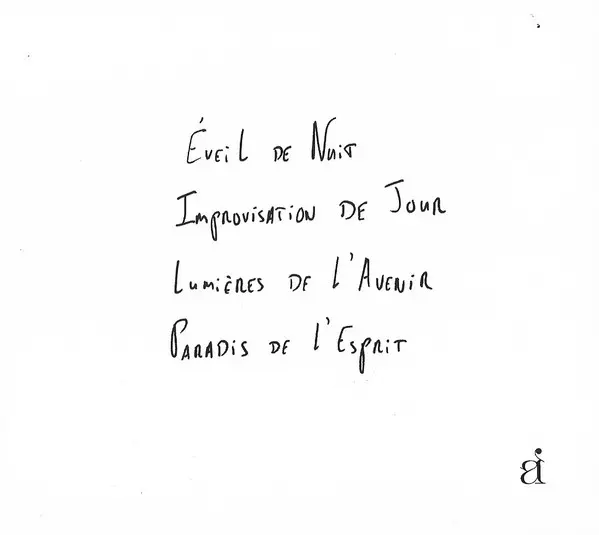 Éveil de Nuit
Improvisation de Jour
Lumières de l'Avenir
Paradis de l'Esprit